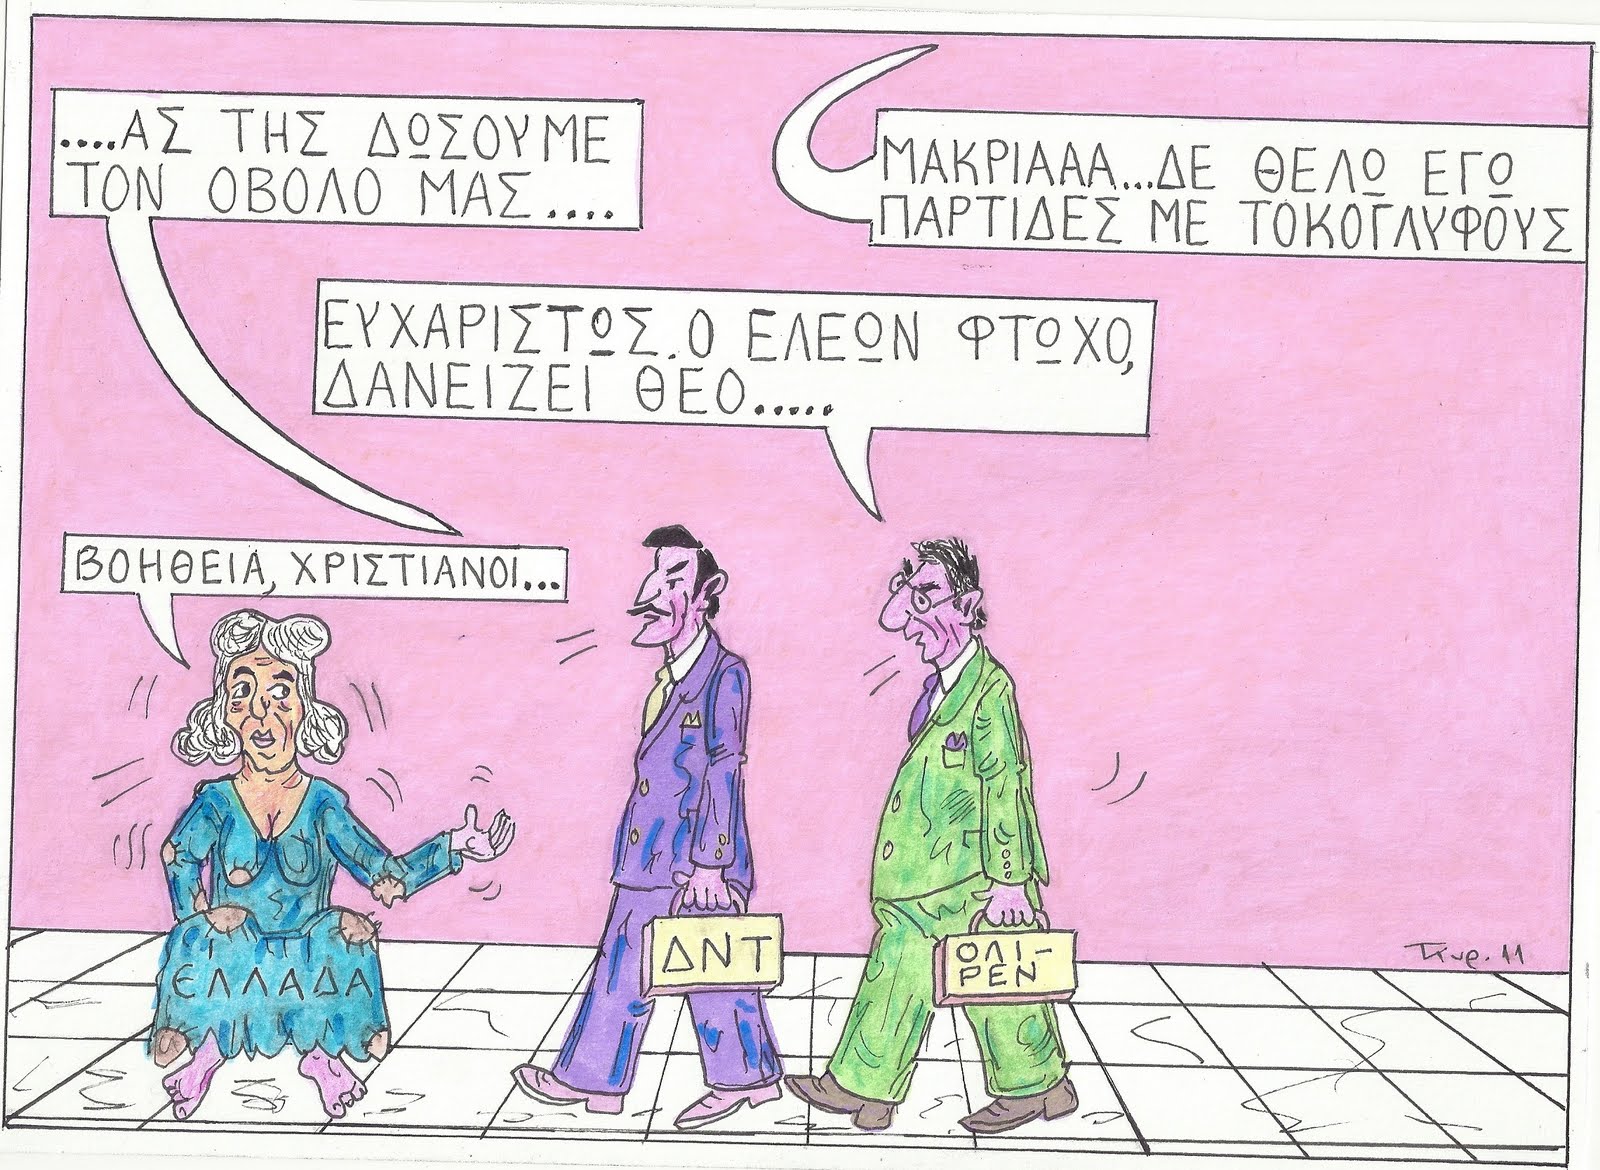 ....ΑΣ ΤΗΣ ΔΩΣΟΥΜΕ
ΤΟΝ ΟΒΟΛΟ ΜΑΣ....
ΜΑΚΡΙΑΑΑ...ΔΕ ΘΕΛΩ ΕΓΩ
ΠΑΡΤΙΔΕΣ ΜΕ ΤΟΚΟΓΛΥΦΟΥΣ
ΕΥΧΑΡΙΣΤΩΣ. Ο ΕΛΕΩΝ ΦΤΩΧΟ,
ΔΑΝΕΙΖΕΙ ΘΕΟ.....
ΒΟΗΘΕΙΑ, ΧΡΙΣΤΙΑΝΟΙ...
ΕΛΛΑΔΑ
ΔΝΤ
ΟΛΙ-
ΡΕΝ
11